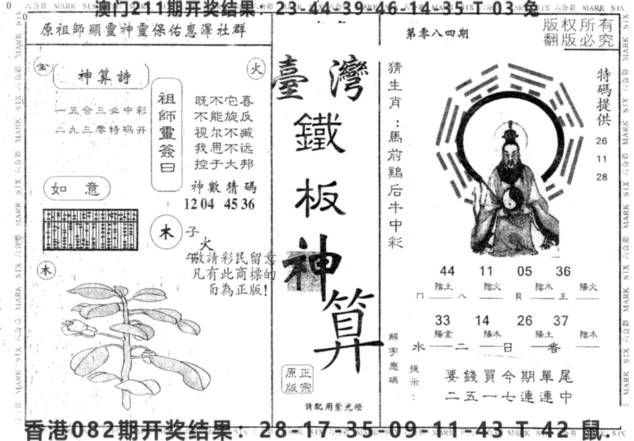 澳门211期开奖结果：23-44-39-46-14-35 T 03 兔
原祖師顯靈神靈保佑惠澤社群
第零八四期
版权所有
翻版必究
金
神算詩
一五合三必中彩
二九三零特码开
祖師靈簽曰
既不它喜
不能旋反
视尔不臧
我思不远
控于大邦
火
神數猜碼
1204 4536
如意
木
子
火
敬請彩民留意
凡有此商標的
而為正版！
木
臺灣
鐵板神算
正宗
原版
請配用紫光燈
猜生肖：馬前鷄后牛中彩
特碼提供
26
11
28
44 11 05 36
陰土 陰火 陰木 陽火
八 王
33 14 26 37
陽金 陽木 陽土 陰木
水 二 日 春
解字應碼
提示：
要錢買今期單尾
二五一七連連中
香港082期开奖结果：28-17-35-09-11-43 T 42 鼠.